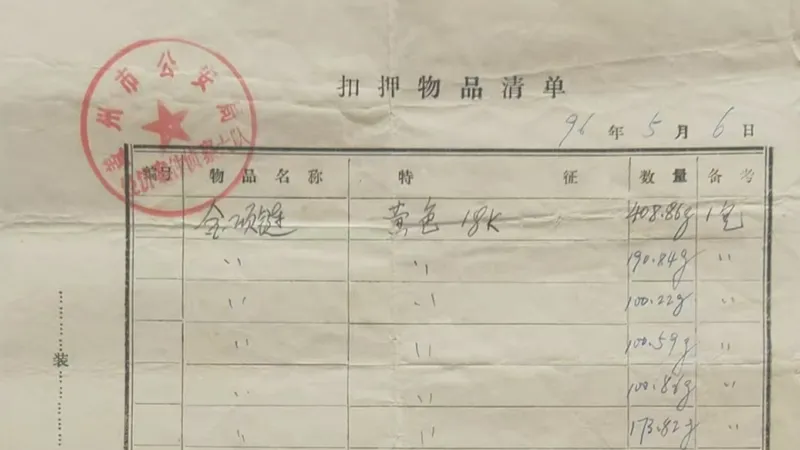 州市公安局
扣押物品清单
96年5月6日
编号 物品名称 特征 数量 备考
金项链 黄色 18K 408.86g 1包
〃 〃 190.84g 〃
〃 〃 100.22g 〃
装 〃 〃 100.59g 〃
〃 〃 100.86g 〃
〃 〃 173.82g 〃